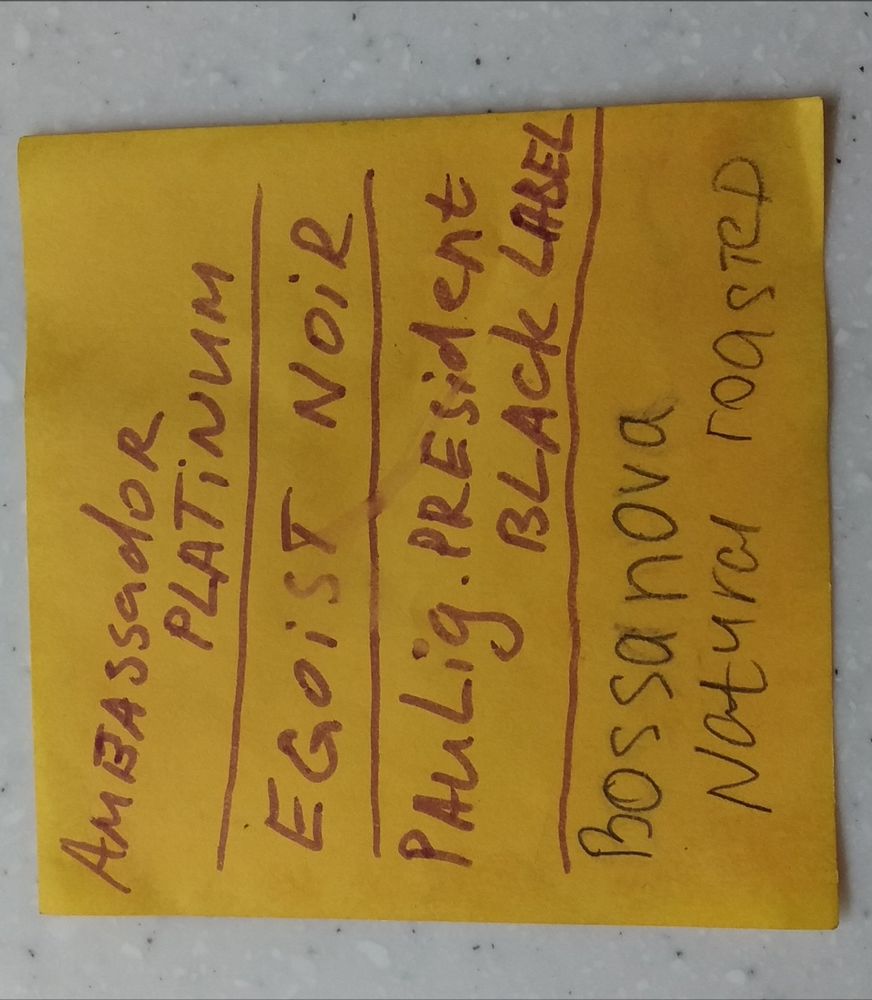 AMBASSadOR
PLATiNUM
EGOiST NOiR
PAuLig. PRESident
BLACk LABEL
Bossanova
Natural roasTED